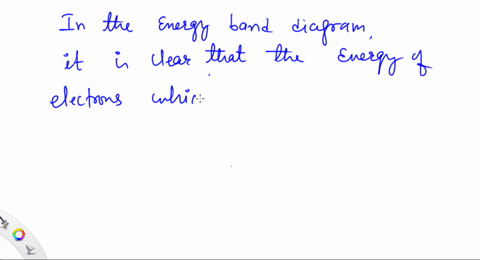 In the Energy band diagram,
it is clear that the Energy of
electrons whic